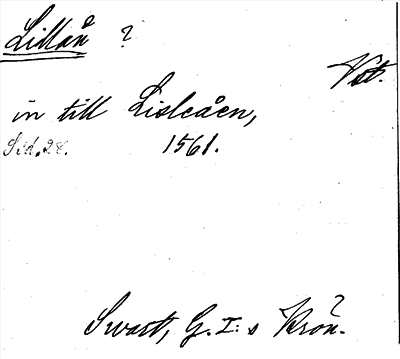 Lillån ?
Vst.
in till Lisleåen,
Sid. 28. 1561.
Swart, G. I:s Krön. ?